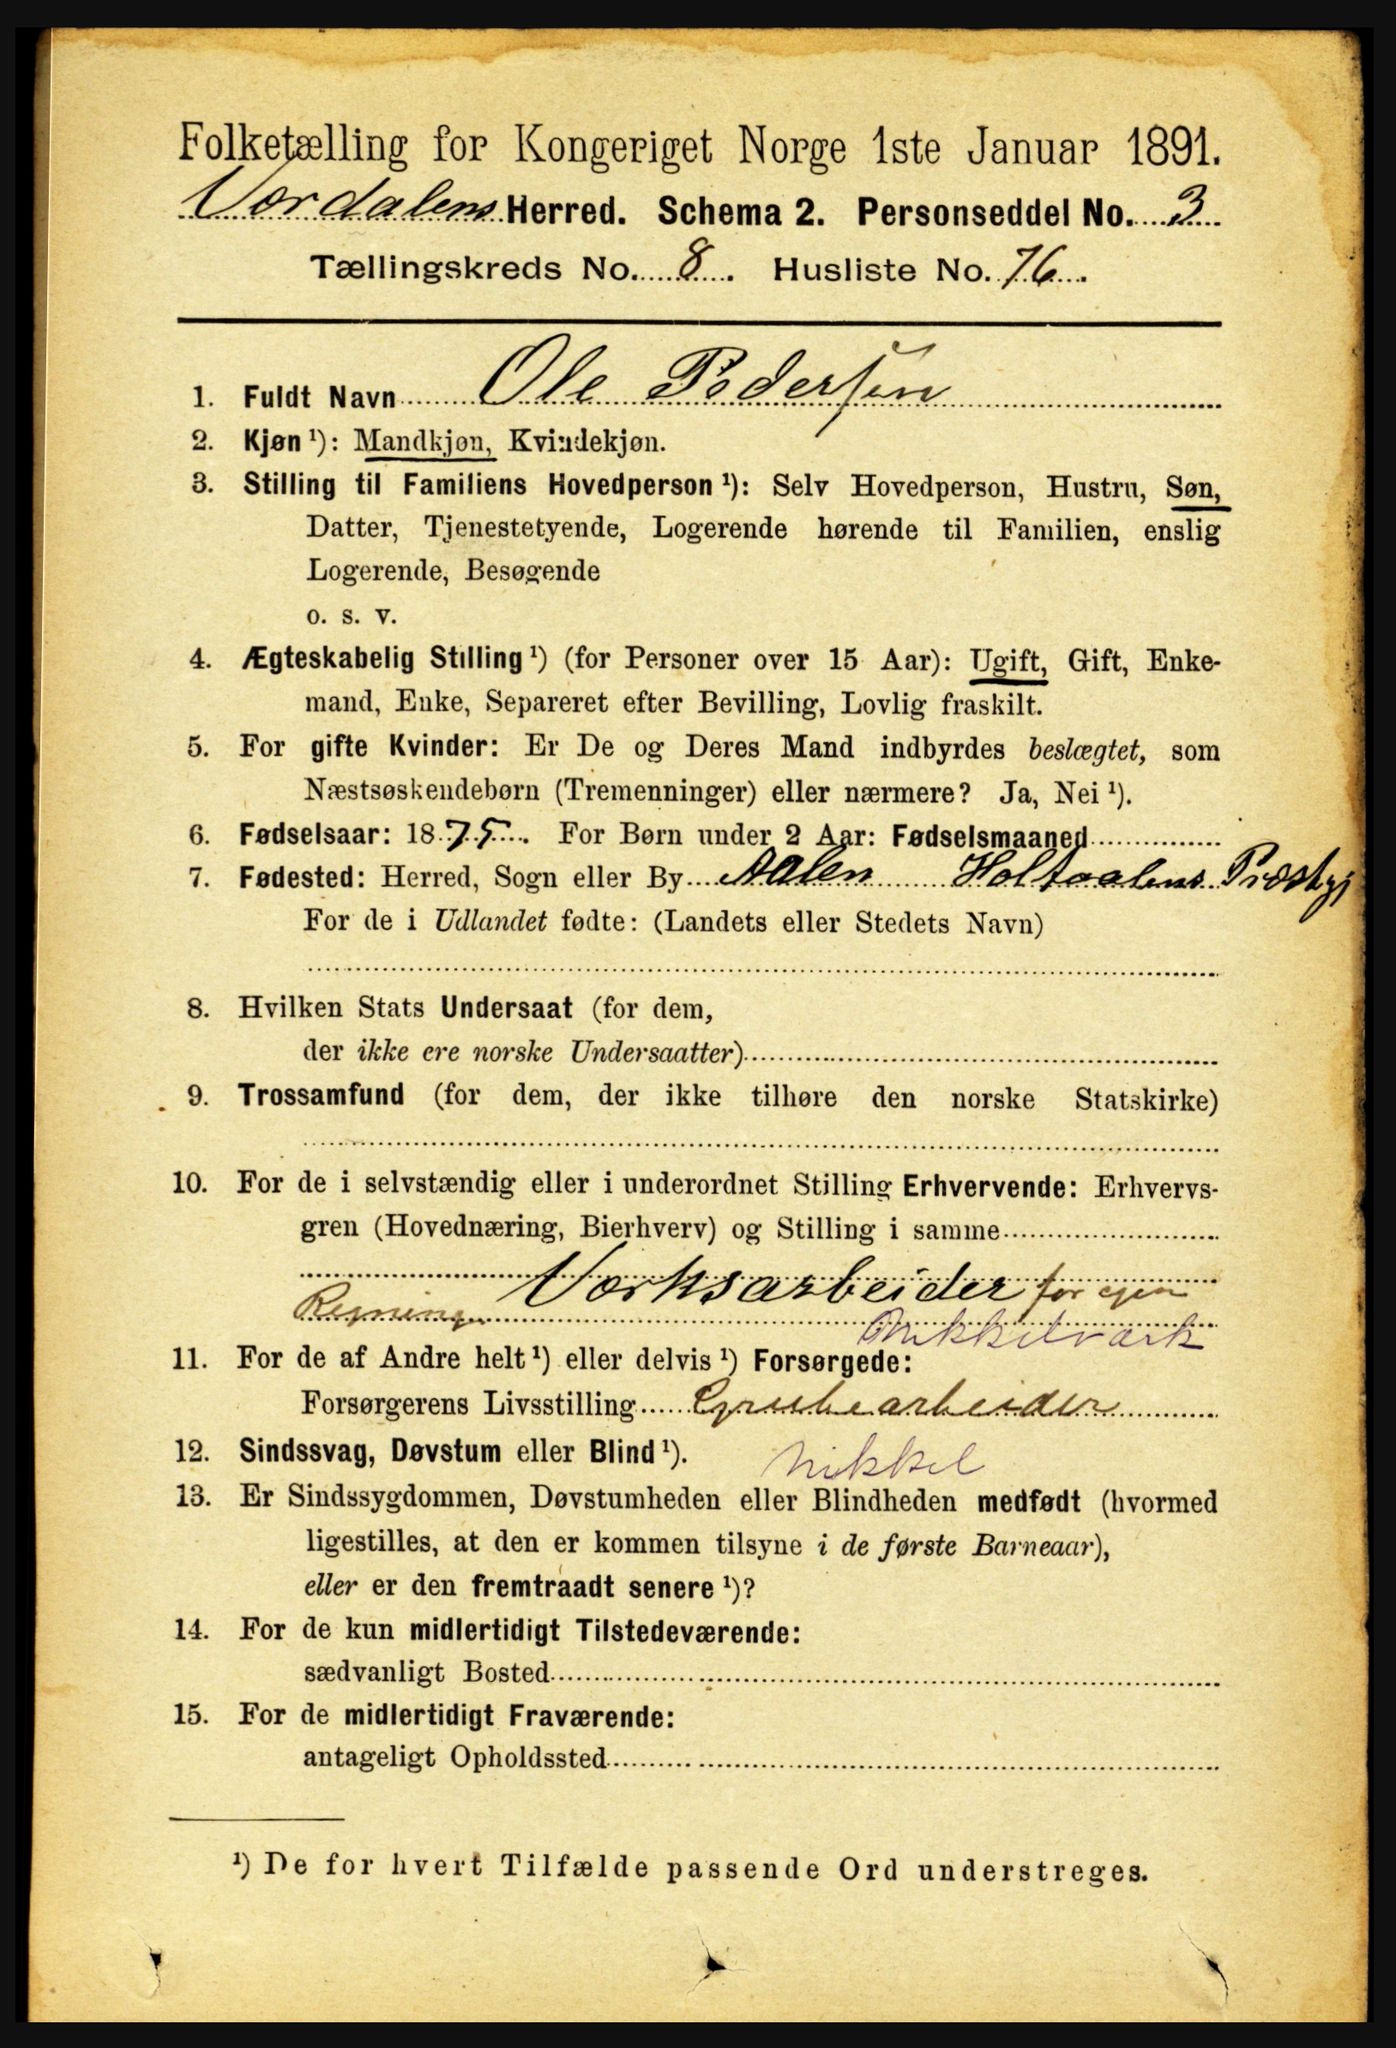 Folketælling for Kongeriget Norge 1ste Januar 1891.
Værdalens Herred. Schema 2. Personseddel No. 3
Tællingskreds No. 8. Husliste No. 76.
1. Fuldt Navn Ole Pedersen
2. Kjøn ¹): Mandkjøn, Kvindekjøn.
3. Stilling til Familiens Hovedperson ¹): Selv Hovedperson, Hustru, Søn,
Datter, Tjenestetyende, Logerende hørende til Familien, enslig
Logerende, Besøgende
o. s. v.
4. Ægteskabelig Stilling ¹) (for Personer over 15 Aar): Ugift, Gift, Enke-
mand, Enke, Separeret efter Bevilling, Lovlig fraskilt.
5. For gifte Kvinder: Er De og Deres Mand indbyrdes beslægtet, som
Næstsøskendebørn (Tremenninger) eller nærmere? Ja, Nei ¹).
6. Fødselsaar: 1875. For Børn under 2 Aar: Fødselsmaaned
7. Fødested: Herred, Sogn eller By Aalen Holtaalens Præstgj
For de i Udlandet fødte: (Landets eller Stedets Navn)
8. Hvilken Stats Undersaat (for dem,
der ikke ere norske Undersaatter)
9. Trossamfund (for dem, der ikke tilhøre den norske Statskirke)
10. For de i selvstændig eller i underordnet Stilling Erhvervende: Erhvervs-
gren (Hovednæring, Bierhverv) og Stilling i samme
Værksarbeider for egen
Regning
Nikkelværk
11. For de af Andre helt ¹) eller delvis ¹) Forsørgede:
Forsørgerens Livsstilling Grubearbeider
12. Sindssvag, Døvstum eller Blind ¹). Nikkel
13. Er Sindssygdommen, Døvstumheden eller Blindheden medfødt (hvormed
ligestilles, at den er kommen tilsyne i de første Barneaar),
eller er den fremtraadt senere ¹)?
14. For de kun midlertidigt Tilstedeværende:
sædvanligt Bosted
15. For de midlertidigt Fraværende:
antageligt Opholdssted
¹) De for hvert Tilfælde passende Ord understreges.